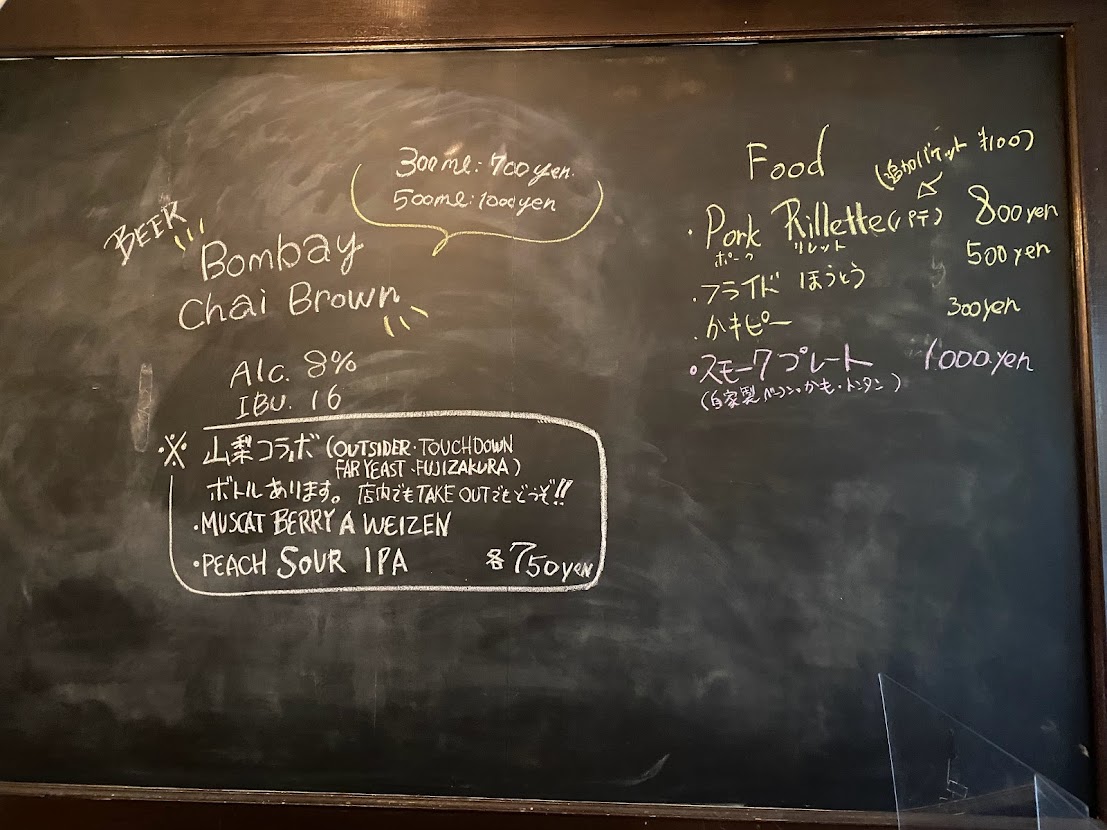 BEER
300ml: 700yen.
500ml: 1000yen
Bombay
Chai Brown
Alc. 8%
IBU. 16
※ 山梨コラボ (OUTSIDER・TOUCHDOWN
FAR YEAST・FUJIZAKURA)
ボトルあります。 店内でもTAKE OUTでもどうぞ!!
・MUSCAT BERRY A WEIZEN
・PEACH SOUR IPA 各750yen
Food
(追加バケット ¥100)
・Pork Rillette(パテ) 800yen
ポーク リレット
・フライド ほうとう 500yen
・かキピー 300yen
・スモークプレート 1000yen
(自家製ベーコン・かも・トンタン)